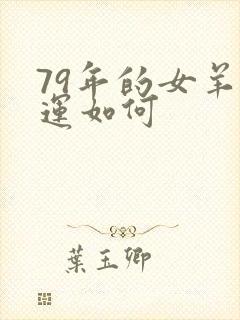 79年的女羊
運如何
葉玉卿